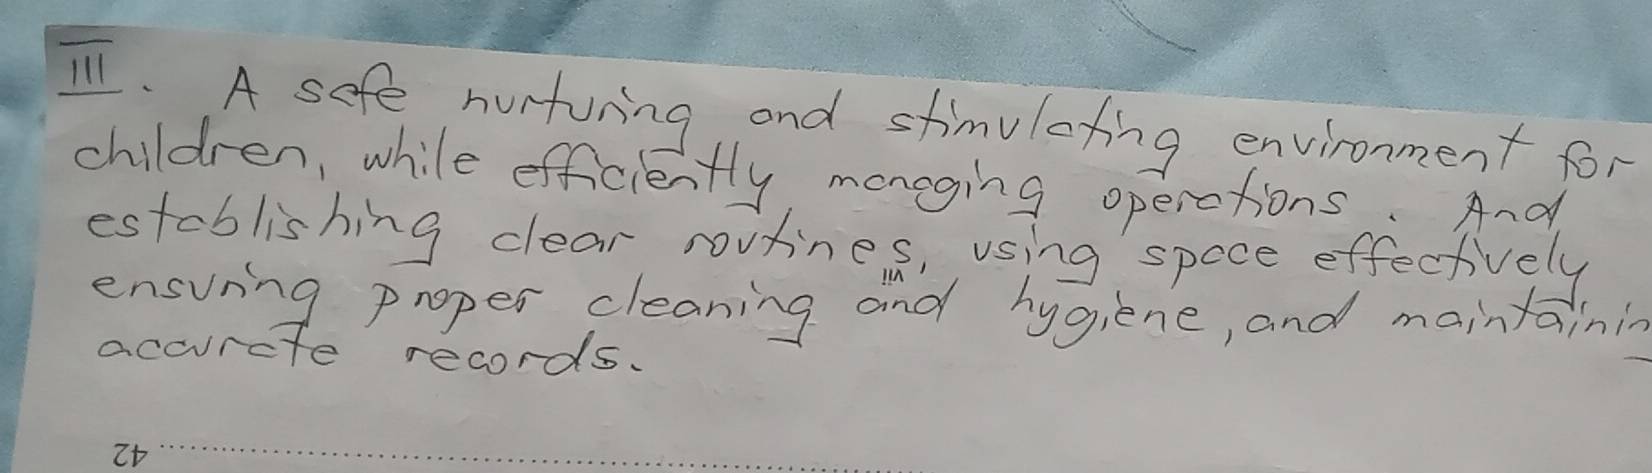 III. A safe nurturing and stimulating environment for
children, while efficiently managing operations. And
establishing clear routines, using space effectively
ensuring proper cleaning and hygiene, and maintainin
accurate records.
vii
42